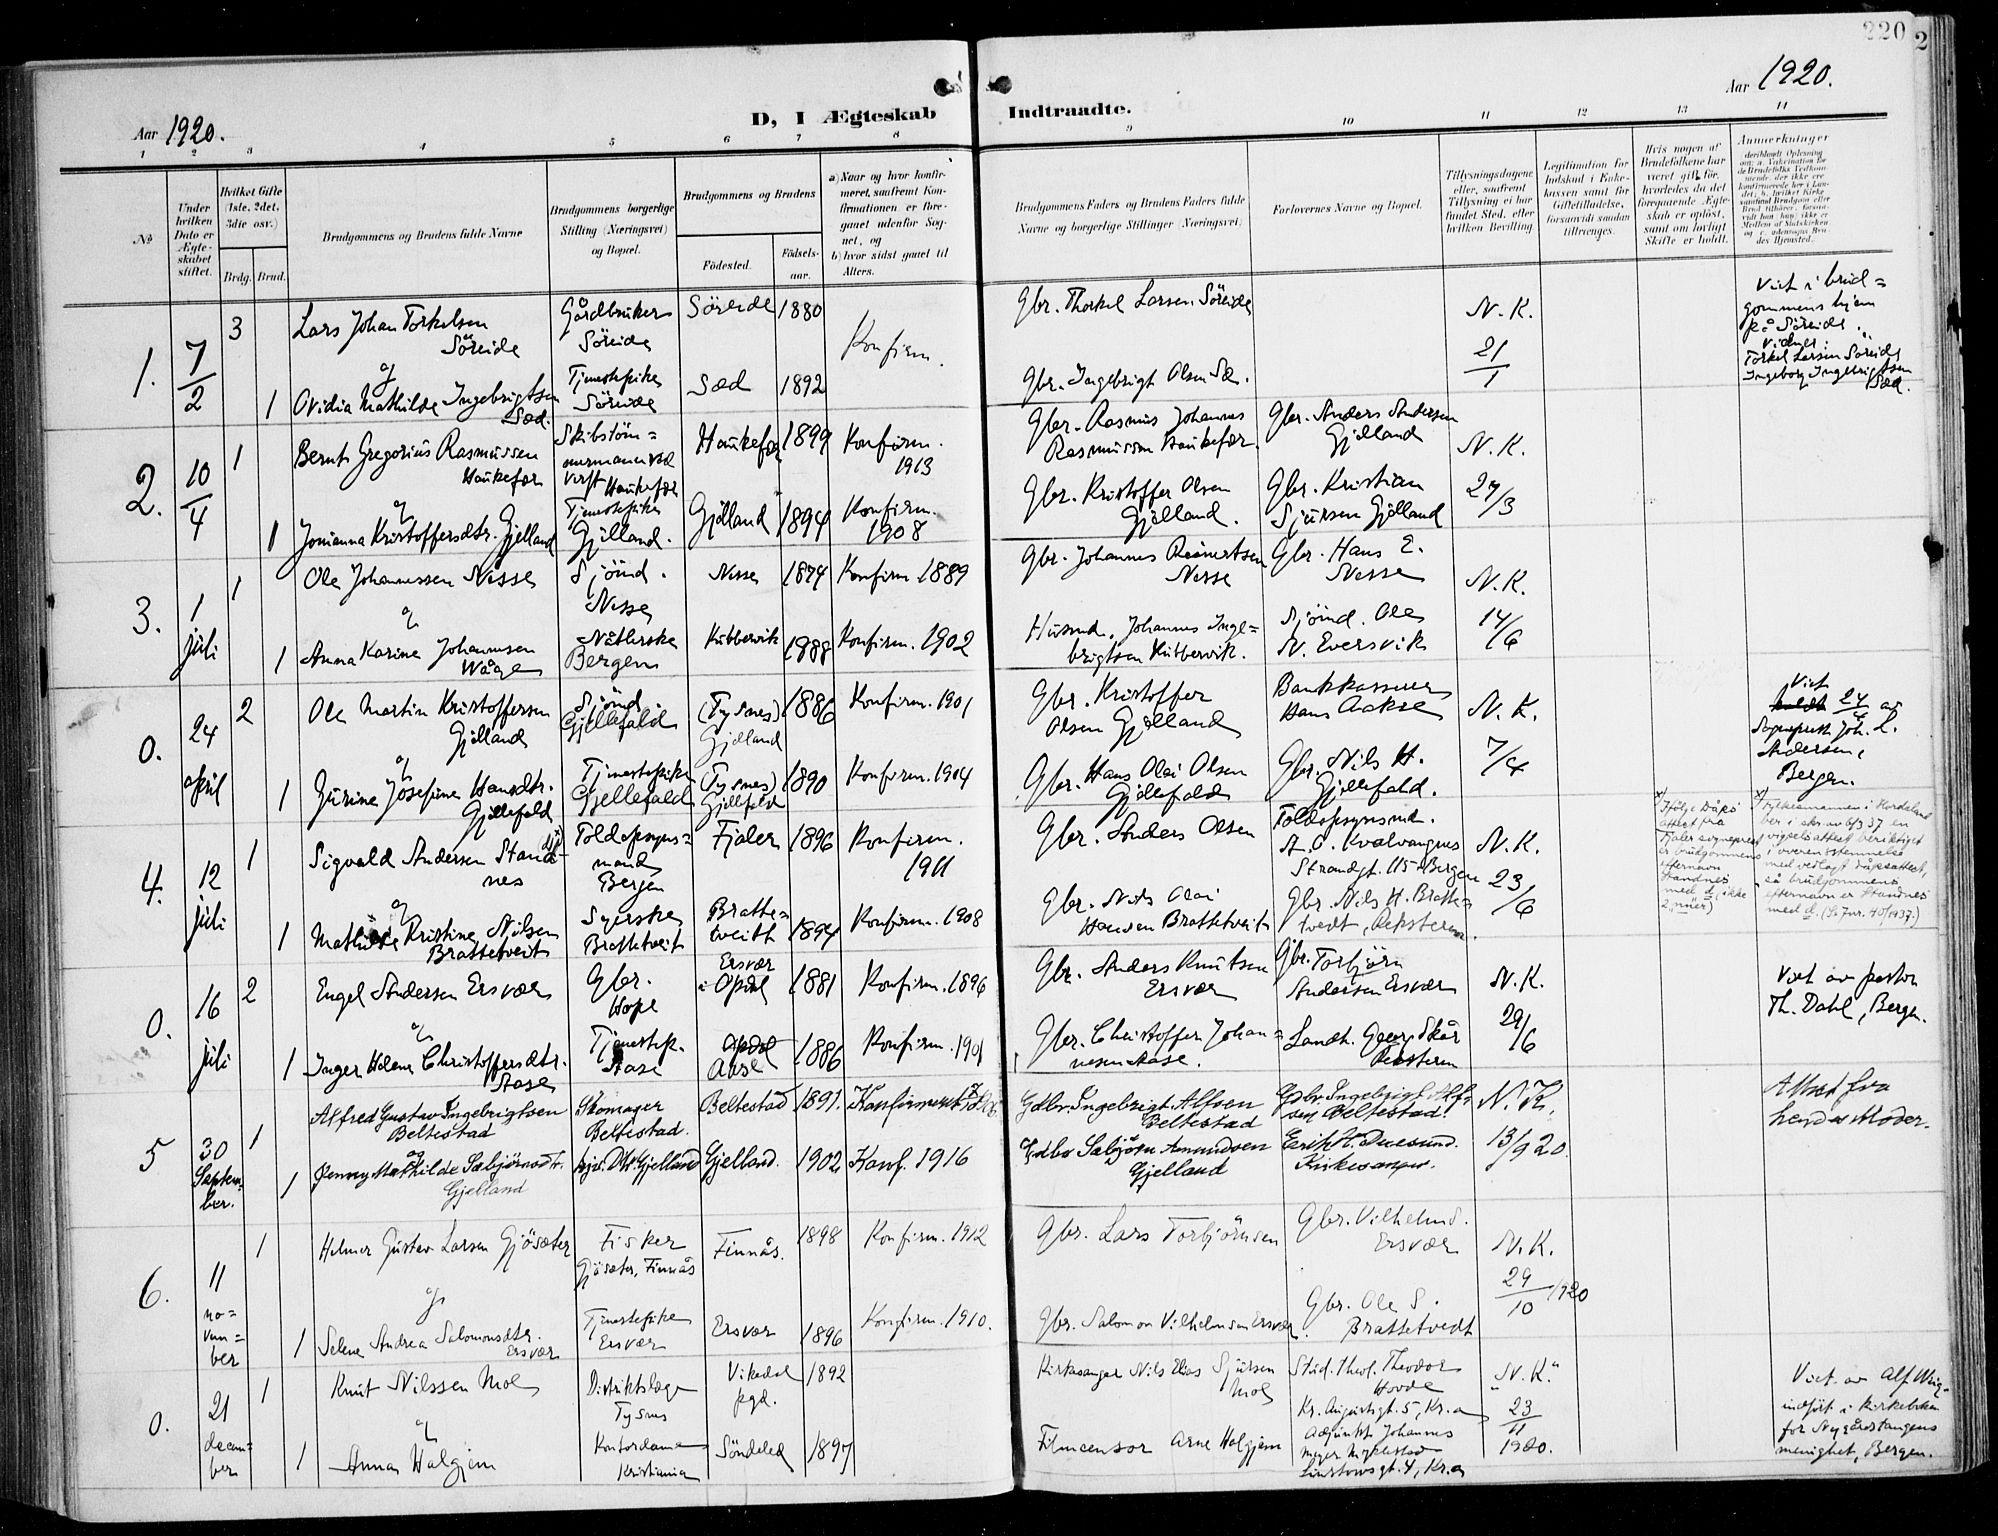 220
2
Aar 1920.
D, I Ægteskab Indtraadte.
Aar 1920.
1 2 3 4 5 6 7 8 9 10 11 12 13 14
No
Under
hvilken
Dato er
Ægte-
skabet
stiftet.
Hvilket Gifte
(1ste, 2det,
3die osv.)
Brdg. Brud.
Brudgommens og Brudens fulde Navne
Brudgommens borgerlige
Stilling (Næringsvei)
og Bopæl.
Brudgommens og Brudens
Födested.
Födsels-
aar.
a) Naar og hvor konfir-
meret, saafremt Kon-
firmationen er fore-
gaaet udenfor Sog-
net, og
b) hvor sidst gaaet til
Alters.
Brudgommens Faders og Brudens Faders fulde
Navne og borgerlige Stillinger (Næringsvei)
Forlovernes Navne og Bopæl.
Tillysningsdagene
eller, saafremt
Tillysning ei har
fundet Sted, efter
hvilken Bevilling
Legitimation for
Indskud i Enke-
kassen samt for
Giftetilladelse,
forsaavidt saadan
tiltrænges.
Hvis nogen af
Brudefolkene har
været gift för,
hvorledes da det
foregaaende Ægte-
skab er oplöst,
samt om lovligt
Skifte er holdt.
Anmerkninger
1. 7/2
3
Lars Johan Torkelsen
Söreide
Gårdbruker
Söreide
Söreide 1880
Konfirm.
Gbr. Thorkel Larsen Söreide
N. K.
21/1
Viet i brud=
gommens hjem
på Söreide.
Vidner:
Torkel Larsen Söreide
Ingeborg Ingebrigtsen
Sæd.
og
1 Ovidia Mathilde Ingebrigtsen
Sæd.
Tjenestepike
Söreide
Sæd 1892
Gbr. Ingebrigt Olsen Sæ.
2. 10/4
1
Bernt Gregorius Rasmussen
Haukefær
Haukefær 1899 Konfirm.
1913
Gbr. Rasmus Johannes
Rasmussen Haukefær.
Gbr. Anders Andersen
Gjelland
N. K.
27/3
og
1 Johanna Kristoffersdtr. Gjelland
Tjenestepike
Gjelland.
Gjelland 1894 Konfirm.
1908
Gbr. Kristoffer Olsen
Gjelland.
Gbr. Kristian
Sjursen Gjelland
3. 1 juli
1
Ole Johannessen Nesse
Sjömd.
Nesse
Nesse 1874 Konfirm 1889
Gbr. Johannes Reinertsen
Nesse
Gbr. Hans E.
Nesse
N. K.
14/6
og
1 Anna Karine Johannesen
Wåge
Nåtlerske
Bergen
Kubbervik 1888 Konfirm. 1902
Husmd. Johannes Inge=
brigtsen Kubbervik.
Sjömd. Ole
N. Eversvik
0. 24 april
2
Ole Martin Kristoffersen
Gjelland
Sjömd.
Gjellefald
(Tysnes)
Gjelland
1886 Konfirm. 1901
Gbr. Kristoffer
Olsen Gjelland
Bankkasserer
Hans Aakre
N. K.
7/4
Viet
24/4 av
Sogneprest Joh. L.
Andersen,
Bergen.
og
1 Gurine Josefine Hansdtr.
Gjellefald
Tjenestepike
Gjellefald
(Tysnes)
Gjellefald
1890 Konfirm. 1904
Gbr. Hans Olai Olsen
Gjellefald
Gbr. Nils H.
Gjellefald.
4. 12 juli
1
Sigvald Andersen Stand-
nes
Toldopsyns=
mand
Bergen
Fjaler 1896 Konfirm.
1911
Gbr. Anders Olsen
Toldopsynsmd.
A. O. Kvalvaagnes
Strandgt. 115 Bergen
N. K.
23/6
x) Ifölge dåps
attest fra
Fjaler sogneprest
er brudgommens
efternavn
Standnes
med d (ikke
2 n'er)
x) Fylkesmannen i Hordaland
ber i skr. av 6/3 37 en
vigselsattest beriktiget
i overensstemmelse
med vedlagt dåpsattest,
så brudgommens
efternavn er Standnes
med d. (Se Jnr. 40/1937.)
og
1 Mathilde Kristine Nilsen
Brattetveit
Syerske
Brattetveit
Bratte=
tveitt 1894 Konfirm. 1908
Gbr. Nils Olai
Hansen Brattetveit
Gbr. Nils H. Bratte=
tvedt, Reksteren.
0. 16 juli
2
Engel Andersen Ersvær
Gbr.
Hope
Ersvær
i Opdal 1881 Konfirm. 1896
Gbr. Anders Knutsen
Ersvær
Gbr. Torbjörn
Andersen Ersvær
N. K.
29/6
Viet av pastor
Th. Dahl, Bergen.
og
1 Inger Helene Christoffersdtr.
Aase
Tjenestep.
Aase
Opdal
Aase 1886 Konfirm. 1901
Gbr. Christoffer Johan=
nesen Aase.
Landh. Georg Skår
Reksteren
5 30 September.
1
Alfred Gustav Ingebrigtsen
Beltestad
Skomager
Beltestad.
Beltestad 1891. Konfirmert
Gdbr. Ingebrigt Alfsen
Beltestad
Gdbr. Ingebrigt Alf-
sen Beltestad.
N. K.
13/9 20.
Attest fra
hendes Moder.
og
1 Jenny Mathilde Sæbjörnsdtr.
Gjelland
Gjelland. 1902 Konf. 1916
Gdbr Sæbjörn Amundsen
Gjelland
Erik H. Duesund.
Kirkesanger.
6. 11 no=vem=ber
1
Helmer Gustav Larsen Gjösæter
Fisker
Gjösæter, Finnås
Finnås. 1898 Konfirm. 1912
Gbr. Lars Torbjörnsen
Gbr. Vilhelm S.
Ersvær
N. K.
29/10 1920
og
1 Selene Andrea Salomonsdtr.
Ersvær
Tjenestepike
Ersvær
Ersvær 1896 Konfirm. 1910.
Gbr. Salomon Vilhelmsen Ersvær.
Gbr. Ole S.
Brattetvedt
0. 21 decem=ber
1
Knut Nilssen Moe
Distriktslæge
Tysnes
Vikedal
pgd. 1892
Kirkesanger Nils Elias Sjursen
Moe
Stud. theol. Theodor
Hovde
Kr. Augustsgt. 5, Kr.a
"N. K."
23/11
1920.
Viet av Alf Wiig
indfört i kirkeboken
for Nygårdstangens
menighet, Bergen.
og
1 Anna Halgjem
Kontordame
Kristiania
Söndeled 1897
Filmcensor Arne Halgjem
Adjunkt Johannes
Meyer Myklestad
Linstowsgt. 4, Kr.a